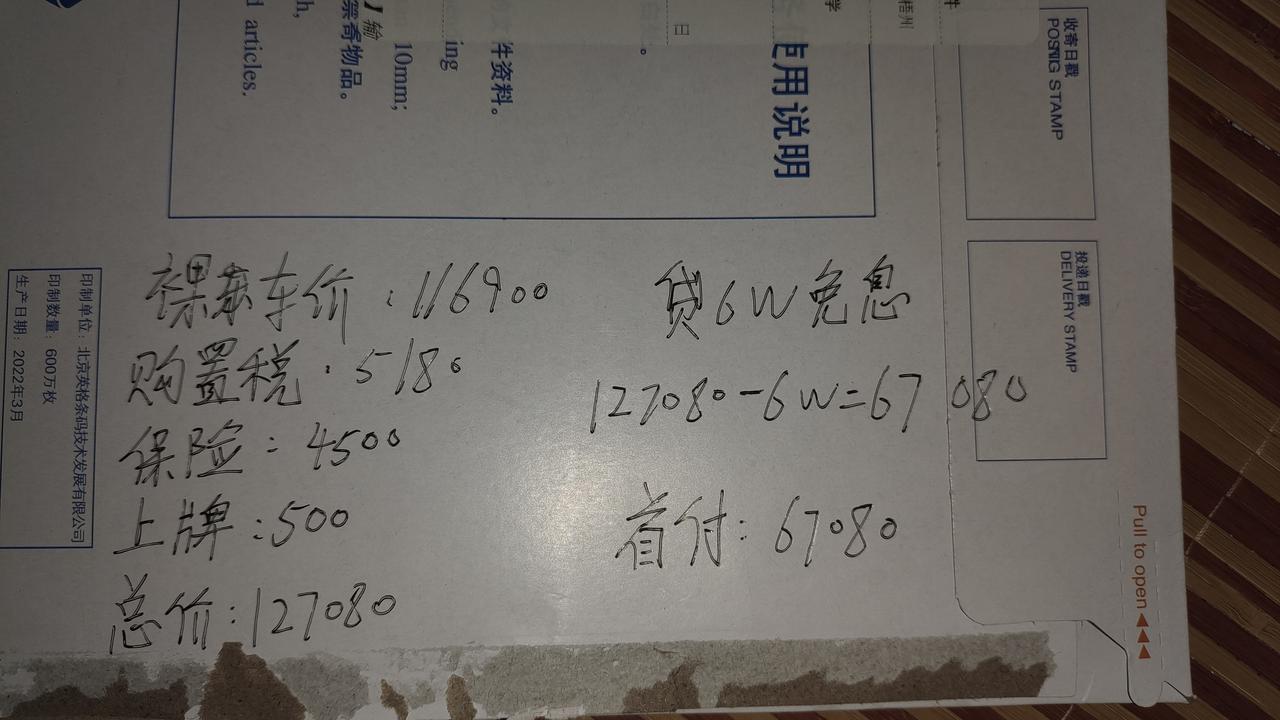 裸车价：116900
购置税：5180
保险：4500
上牌：500
总价：127080
贷6W免息
127080-6W=67080
首付：67080
使用说明
件资料。
ing
10mm;
】输
禁寄物品。
h,
d articles.
日
学
梧州
件
收寄日戳
POSNIG STAMP
投递日戳
DELIVERY STAMP
印制单位：北京英格条码技术发展有限公司
印制数量：600万枚
生产日期：2022年3月
Pull to open